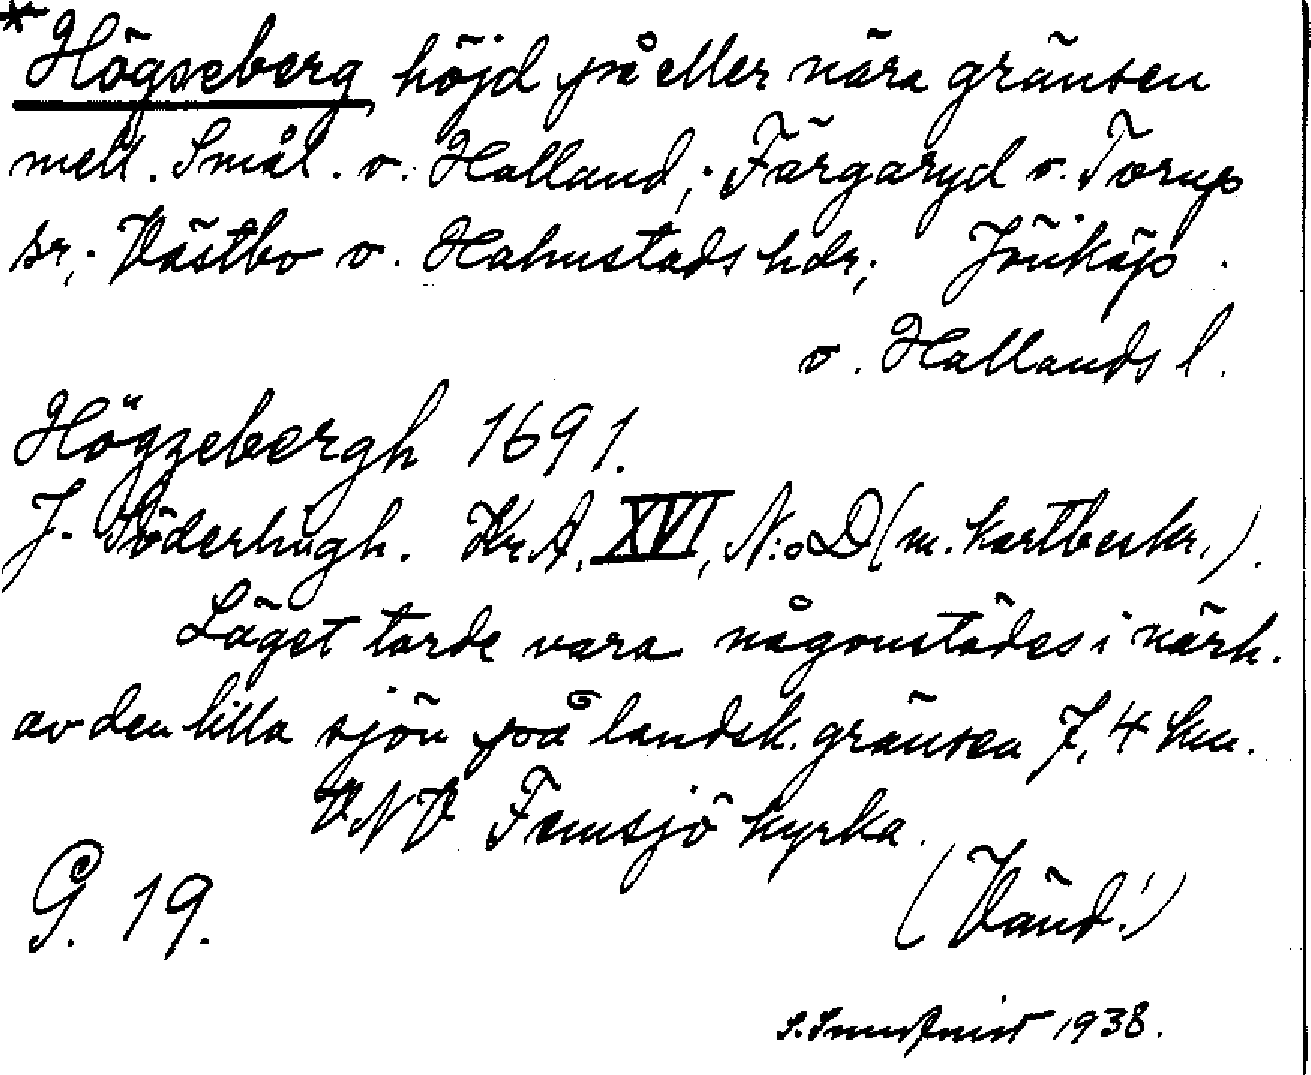 *Högseberg höjd på eller nära gränsen
mell. Smål. o. Halland; Färgaryd o. Torup
sr; Västbo o. Halmstads hdr; Jönköp.
o. Hallands l.
Högzebergh 1691.
J. Söderhugh. Kr.A. XVI, N:o D (m. kartbeskr.).
Läget torde vara någonstädes i närh.
av den lilla sjön på landsk. gränsen 7,4 km.
VNV Femsjö kyrka.
(Vänd!)
G. 19.
1938.